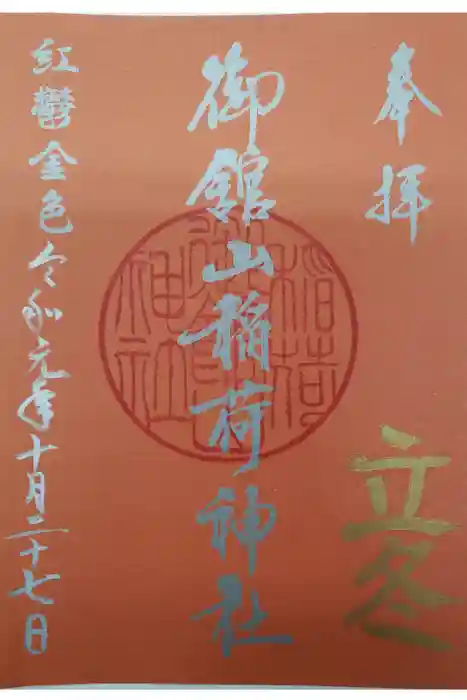 奉拝
立冬
御館山稲荷神社
紅鬱金色 令和元年十月二十七日